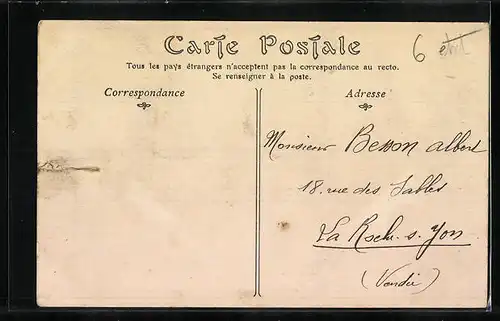 Carte Postale
6
Tous les pays étrangers n'acceptent pas la correspondance au recto.
Se renseigner à la poste.
Correspondance
Adresse
Monsieur Besson Albert
18. rue des Sables
La Roche-s-Yon
(Vendée)